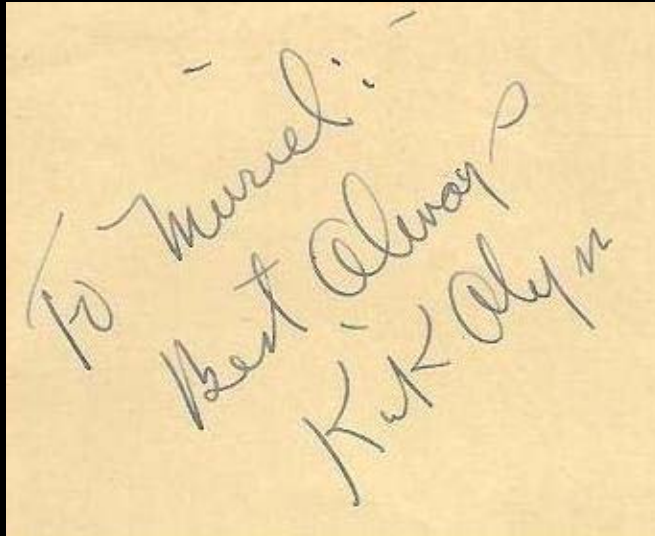 To Muriel:
Best Always
Kirk Alyn